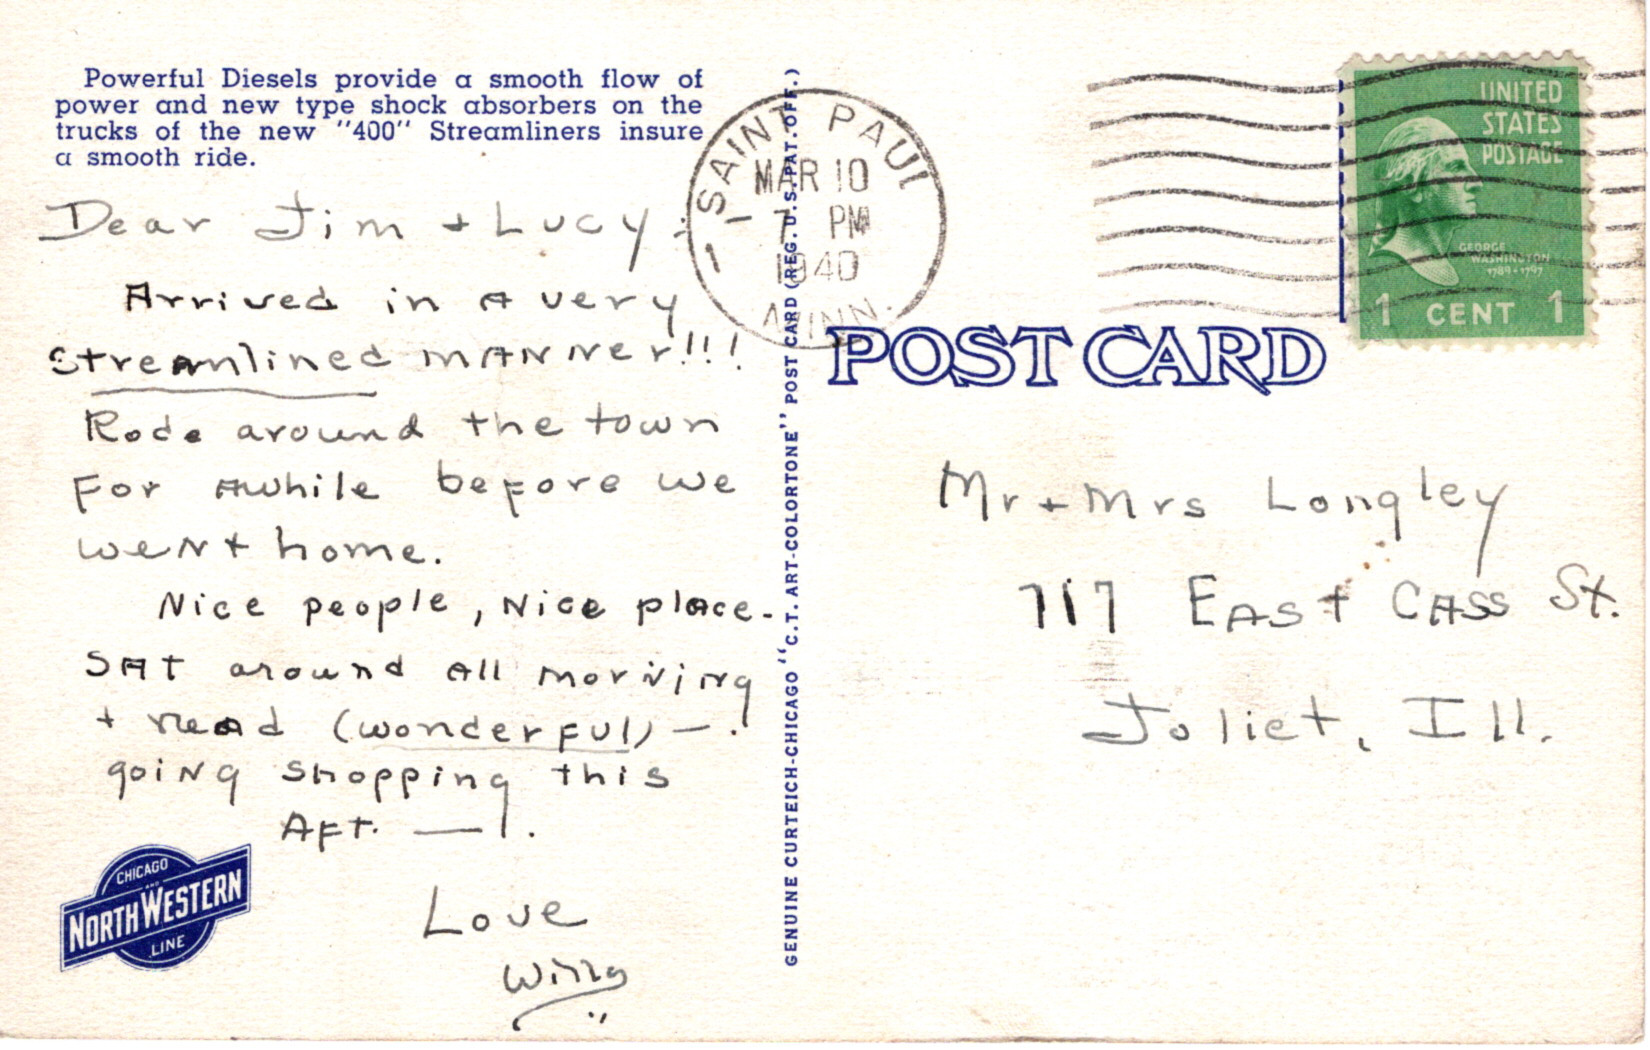 Powerful Diesels provide a smooth flow of
power and new type shock absorbers on the
trucks of the new "400" Streamliners insure
a smooth ride.
Dear Jim + Lucy:
Arrived in A very
streamlined mANNer!!!
Rode around the town
For Awhile before we
weNt home.
Nice people, Nice place-
SAt around All morning
+ read (wonderful) —.
goiNg shopping this
AFt. —.
Love
CHICAGO
AND
NORTH WESTERN
LINE
GENUINE CURTEICH-CHICAGO "C.T. ART-COLORTONE" POST CARD (REG. U.S. PAT. OFF.)
SAINT PAUL
MAR 10
7 PM
1940
MINN.
UNITED
STATES
POSTAGE
GEORGE
WASHINGTON
1789-1797
1 CENT 1
POST CARD
Mr + Mrs Longley
717 EAst CAss St.
Joliet, Ill.